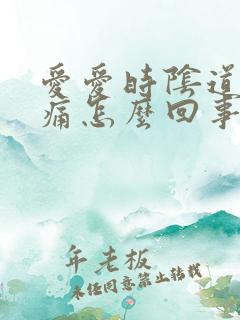 愛愛時陰道
痛怎麼回事
年老板
未经同意禁止转载